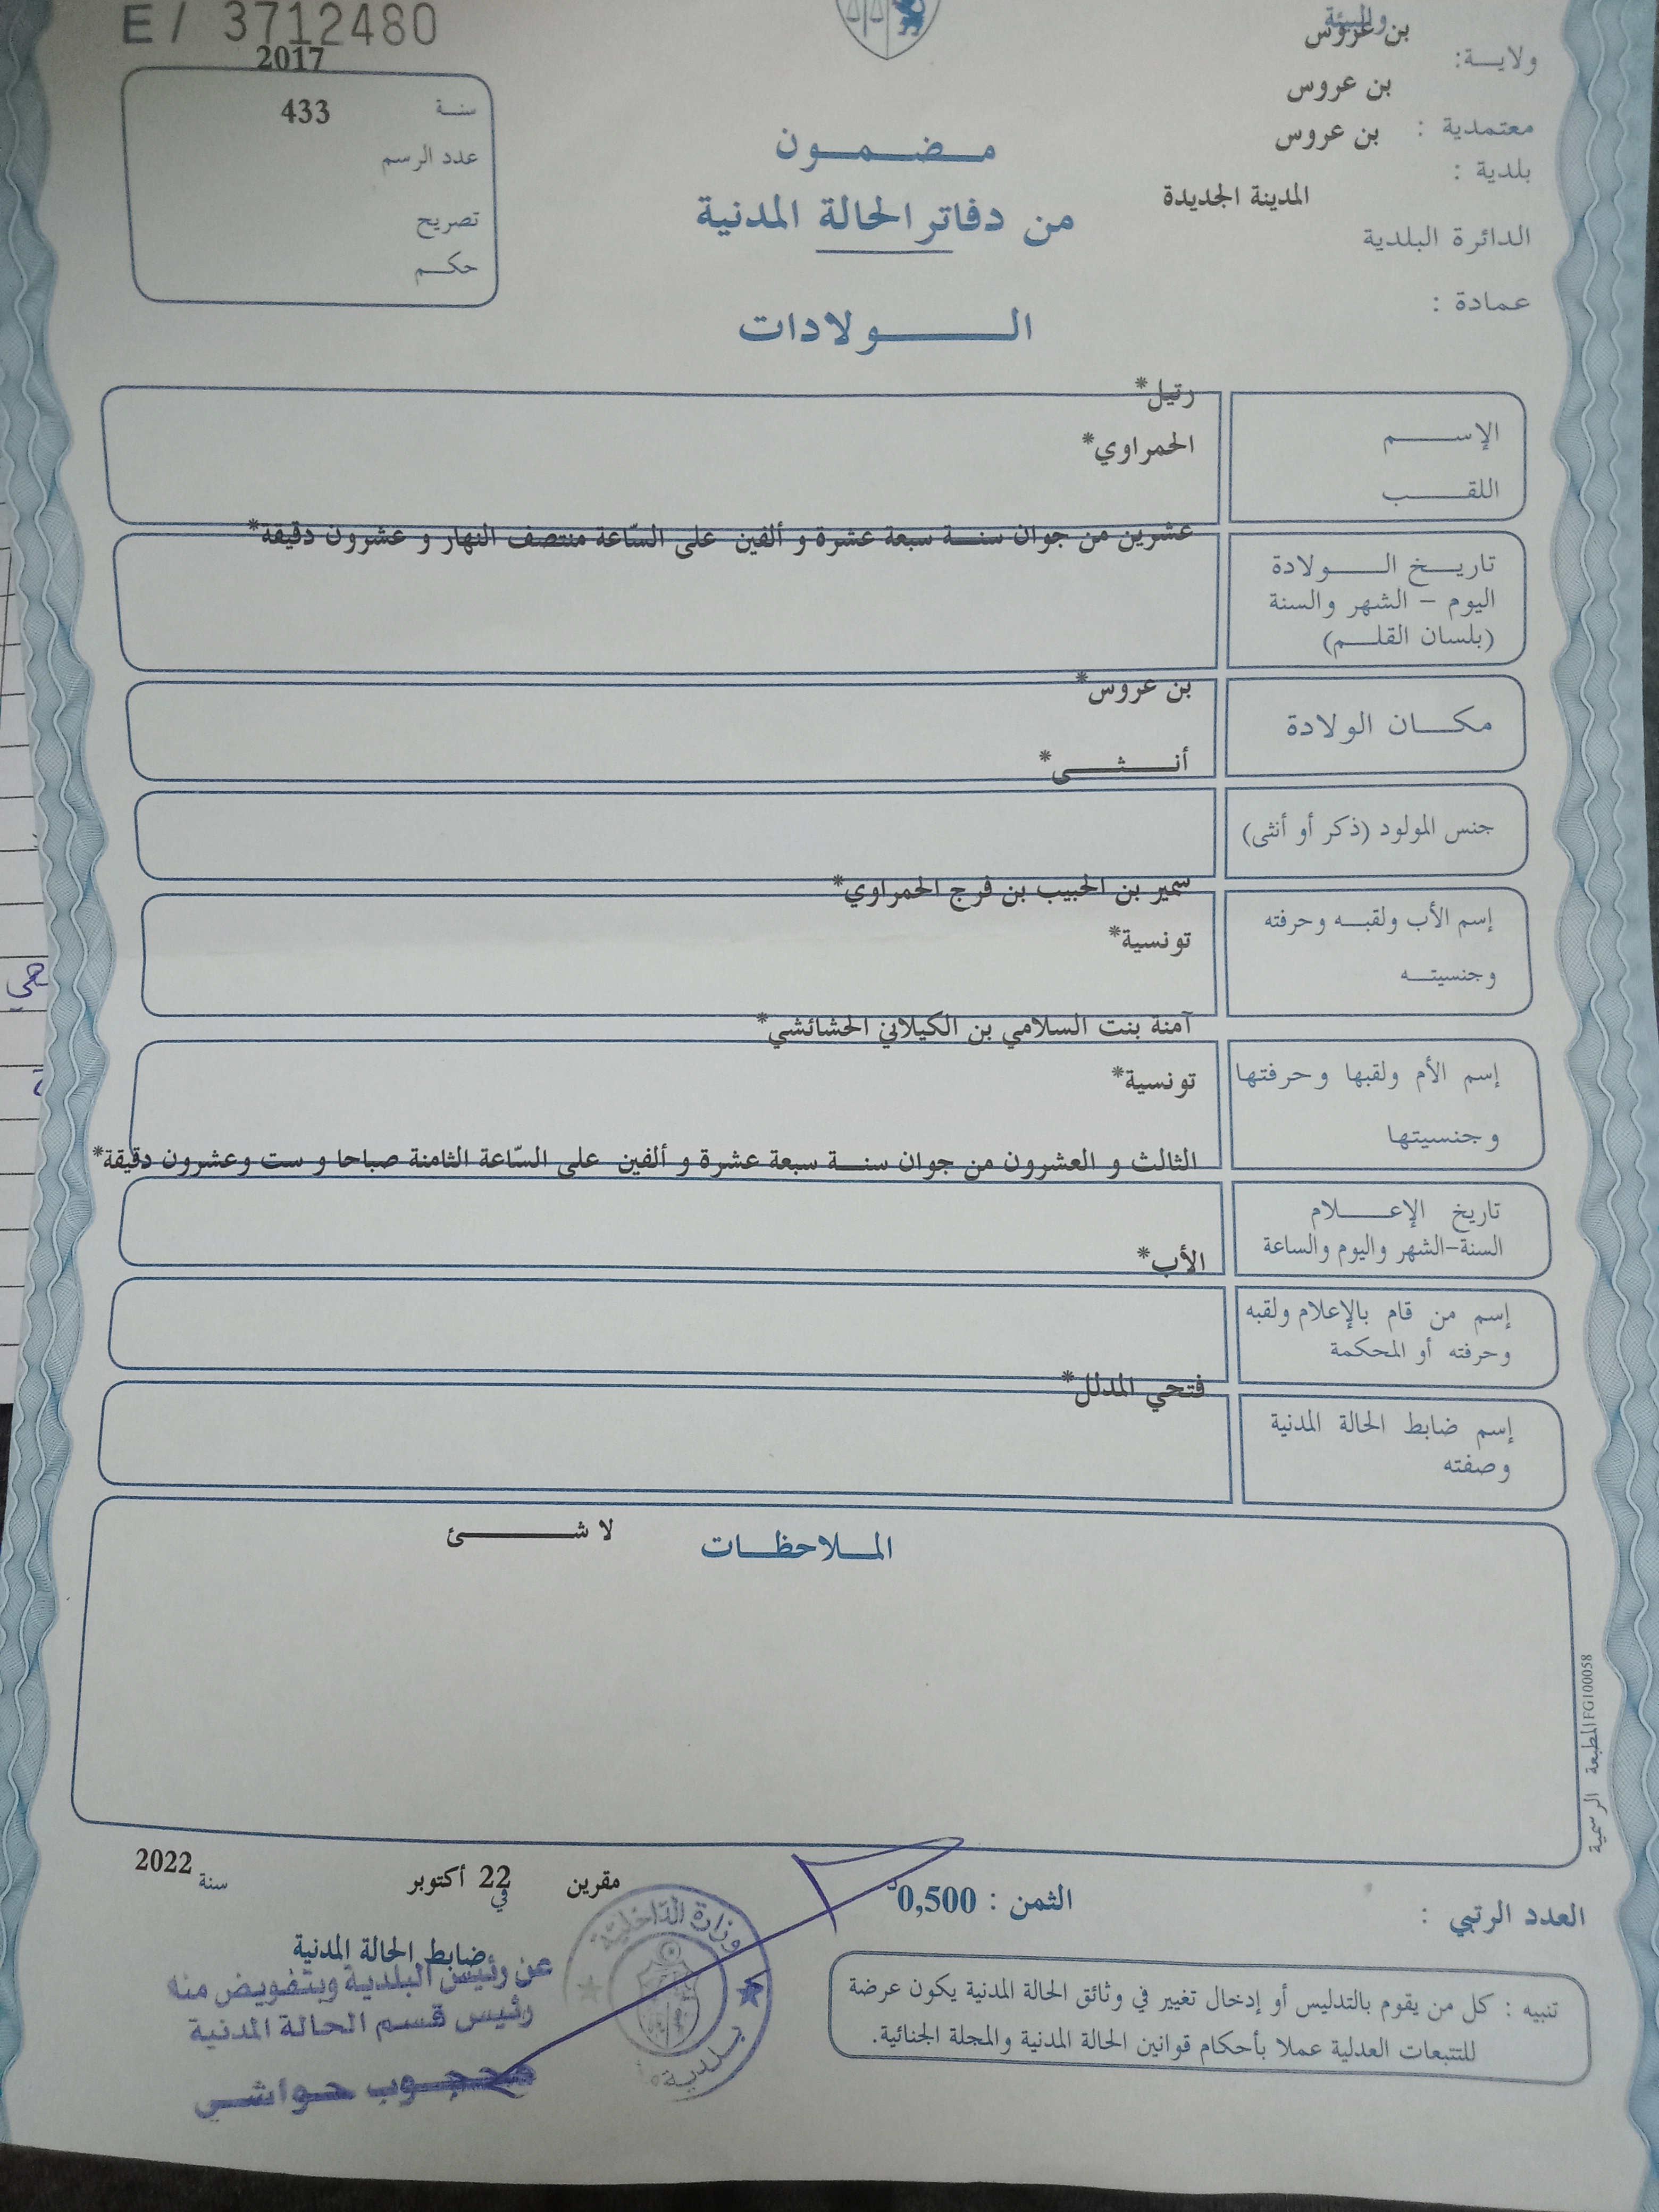 E / 3712480
2017
سنة 433
عدد الرسم
تصريح
حكم
والبيئة
بن عروس
ولاية:
بن عروس
معتمدية :
بن عروس
بلدية :
المدينة الجديدة
الدائرة البلدية
عمادة :
مضمون
من دفاتر الحالة المدنية
الولادات
رتيل*
الإسم
الحمراوي*
اللقب
عشرين من جوان سنة سبعة عشرة و ألفين على السّاعة منتصف النهار و عشرون دقيقة*
تاريخ الولادة
اليوم - الشهر والسنة
(بلسان القلم)
بن عروس*
مكان الولادة
أنثى*
جنس المولود (ذكر أو أنثى)
سمير بن الحبيب بن فرج الحمراوي*
إسم الأب ولقبه وحرفته
تونسية*
وجنسيته
آمنة بنت السلامي بن الكيلاني الحشائشي*
إسم الأم ولقبها وحرفتها
تونسية*
وجنسيتها
الثالث و العشرون من جوان سنة سبعة عشرة و ألفين على السّاعة الثامنة صباحا و ست وعشرون دقيقة*
تاريخ الإعلام
السنة-الشهر واليوم والساعة
الأب*
إسم من قام بالإعلام ولقبه
وحرفته أو المحكمة
فتحي المدلل*
إسم ضابط الحالة المدنية
وصفته
الملاحظات
لا شئ
المطبعة الرسمية FG100058
العدد الرتبي :
الثمن : 0,500د
مقرين في 22 أكتوبر سنة 2022
ضابط الحالة المدنية
عن رئيس البلدية وبتفويض منه
رئيس قسم الحالة المدنية
محجوب حواشي
وزارة الداخلية
بلدية
تنبيه : كل من يقوم بالتدليس أو إدخال تغيير في وثائق الحالة المدنية يكون عرضة
للتتبعات العدلية عملا بأحكام قوانين الحالة المدنية والمجلة الجنائية.